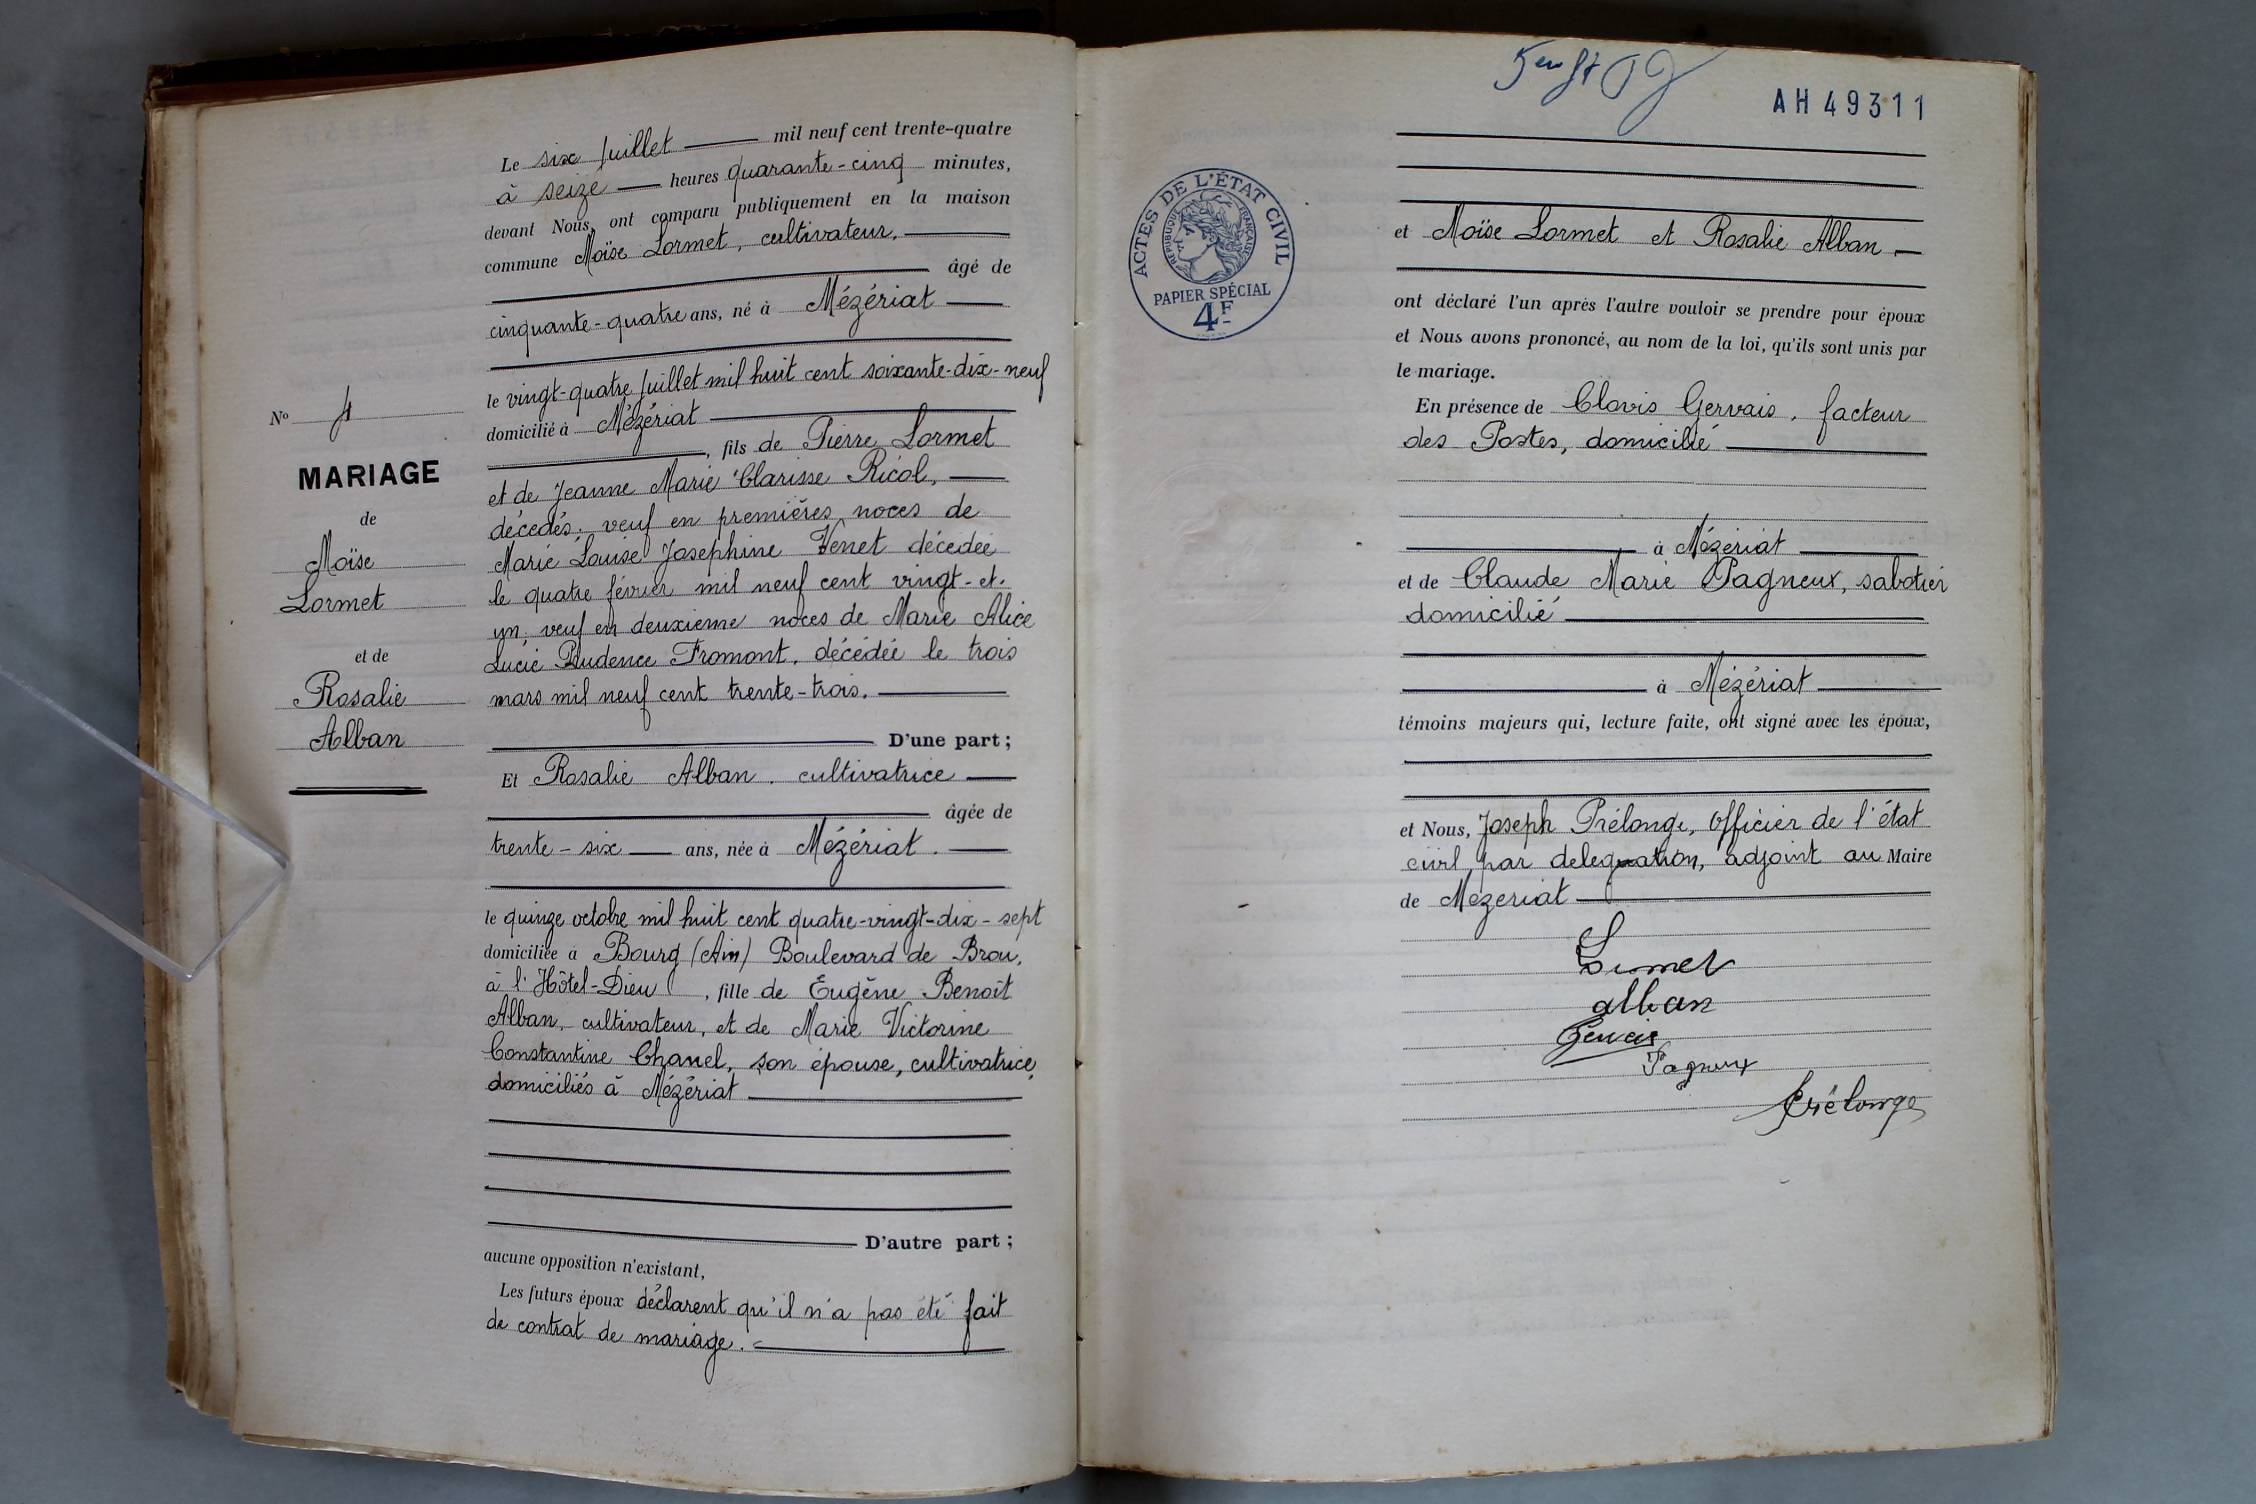 Le six juillet mil neuf cent trente-quatre
à seize heures quarante-cinq minutes,
devant Nous, ont comparu publiquement en la maison
commune Moïse Lormet, cultivateur,
âgé de
cinquante-quatre ans, né à Mézériat
le vingt-quatre juillet mil huit cent soixante-dix-neuf
domicilié à Mézériat
, fils de Pierre Lormet
et de Jeanne Marie Clarisse Ricol,
décédés; veuf en premières noces de
Marie Louise Josephine Venet décédée
le quatre février mil neuf cent vingt-et-
un; veuf en deuxième noces de Marie Alice
Lucie Prudence Fromont, décédée le trois
mars mil neuf cent trente-trois.
D'une part;
Et Rosalie Alban, cultivatrice
âgée de
trente-six ans, née à Mézériat.
le quinze octobre mil huit cent quatre-vingt-dix-sept
domiciliée à Bourg (Ain) Boulevard de Brou,
à l'Hôtel-Dieu, fille de Eugène Benoît
Alban, cultivateur, et de Marie Victorine
Constantine Chanel, son épouse, cultivatrice,
domiciliés à Mézériat
D'autre part;
aucune opposition n'existant,
Les futurs époux déclarent qu'il n'a pas été fait
de contrat de mariage.
No 4
MARIAGE
de
Moïse
Lormet
et de
Rosalie
Alban
AH 49311
ACTES DE L'ÉTAT CIVIL
RÉPUBLIQUE FRANÇAISE
PAPIER SPÉCIAL
4F
et Moïse Lormet et Rosalie Alban
ont déclaré l'un après l'autre vouloir se prendre pour époux
et Nous avons prononcé, au nom de la loi, qu'ils sont unis par
le mariage.
En présence de Clovis Gervais, facteur
des Postes, domicilié
à Mézériat
et de Claude Marie Pagneux, sabotier
domicilié
à Mézériat
témoins majeurs qui, lecture faite, ont signé avec les époux,
et Nous, Joseph Prélonge, Officier de l'état
civil, par deleguation, adjoint au Maire
de Mézériat
Lormet
alban
Gervais
Pagneux
Prélonge